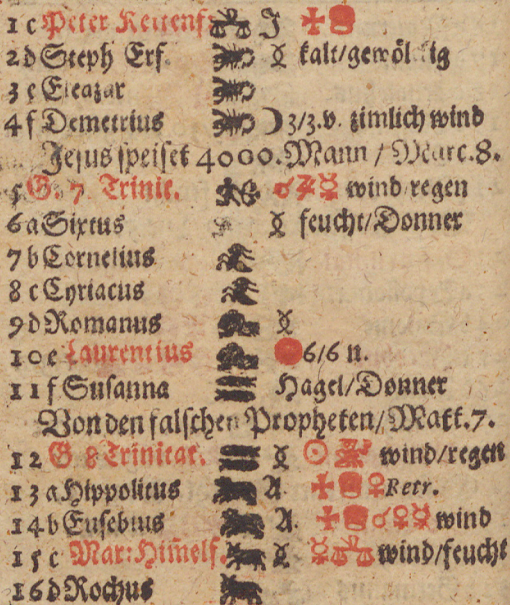 1 c Peter Kettenf. ♎ J ✠
2 d Steph Erf. ☿ kalt/gewölckig
3 e Eleazar
4 f Demetrius ☽ 3/3.v. zimlich wind
Jesus speiset 4000. Mann / Marc. 8.
5 G. 7 Trinit. ♂ ☿ wind regen
6 a Sixtus ☿ feucht/Donner
7 b Cornelius
8 c Cyriacus
9 d Romanus ☿
10 e Laurentius 6/6 n.
11 f Susanna Hagel/Donner
Von den falschen Propheten/Matt. 7.
12 G 8 Trinitat. ☿ ☉ wind/regen
13 a Hippolitus A. ✠ ♀ Retr.
14 b Eusebius A. ✠ ♂ ♀ ☿ wind
15 c Mar: Him̃elf. ☿ ☿ ♎ wind/feucht
16 d Rochus